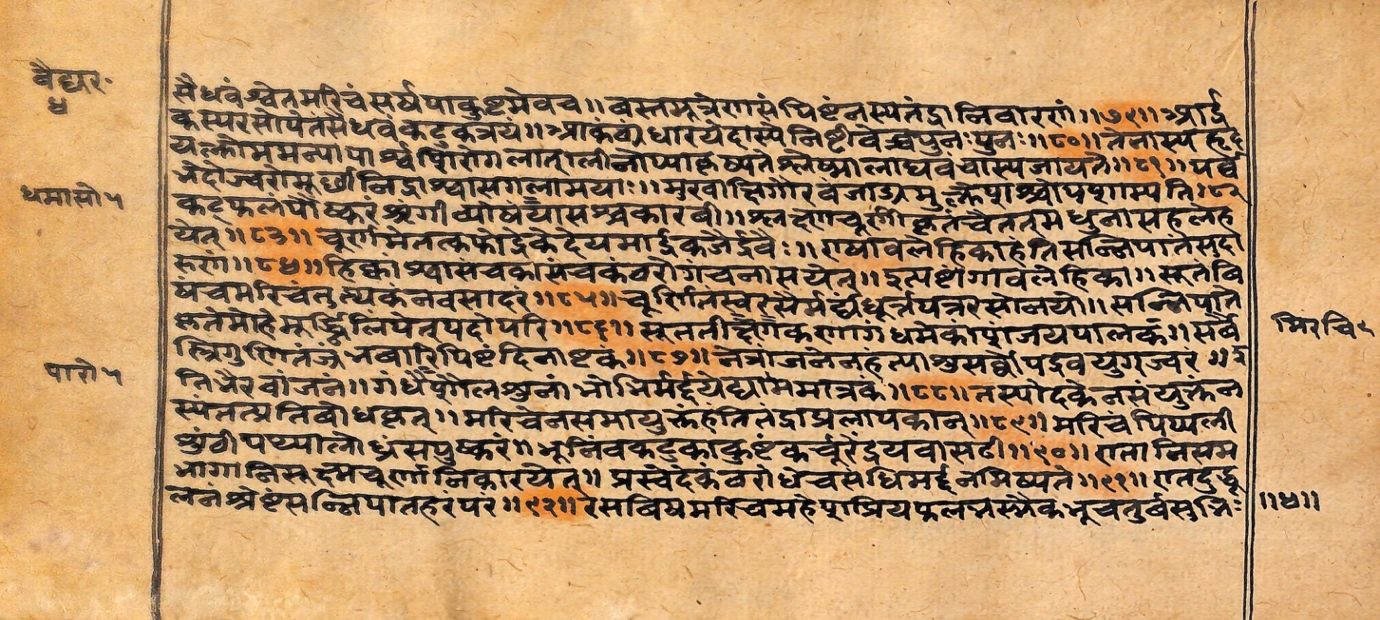 वैद्यर॰
४
सैधवं श्वेतमरिचं सर्षपाकुष्टमेवच ॥ वस्तमूत्रेणसंपिष्टंनस्यतंद्रानिवारणं ॥ ७९ ॥ आर्द्र
कस्वरसोपेतंसैधवंकटुकत्रयं ॥ आकंठंधारयेदास्येनिष्टीवेच्चपुनःपुनः ॥ ८० ॥ तेनास्यहृद
श्लेष्मालाघवंचास्यजायते ॥ ८१ ॥ पर्व
भेदोज्वरोमूर्छानिद्राश्वासगलामयाः ॥ मुखाक्षिगौरवंजाड्यमुत्क्लेशश्चोपशाम्यति ८२
कट्फलंपौष्करंश्रृंगीव्योषंयासश्चकारवी ॥ श्लक्ष्णचूर्णीकृतंचैतत्मधुनासहलेह
येत् ॥ ८३ ॥ चूर्णमेतत्कफोद्रेकेदेयमार्द्रकजैर्द्रवैः ॥ एषावलेहिकाहंतिसन्निपातंसुदा
रुणं ॥ ८४ ॥ हिक्कांश्वासंचकासंचकंठरोगंचनासयेत् ॥ इत्यष्टांगावलेहिका ॥ सूतंवि
षंचमरिचंतुत्थकंनवसादरं ॥ ८५ ॥ चूर्णितंस्वरसैर्मर्द्यंधूर्त्तपत्ररसोनयो ॥ सन्निपाते
कृतेमोहेमूर्ध्निलिंपेत्पदोपरि ॥ ८६ ॥ सूततीक्ष्णैककणागंधमेकांशंजयपालकं ॥ सर्वै
स्त्रिगुणितंजंभवारिपिष्टंदिनाष्टकं ॥ ८७ ॥ नेत्रांजनेनहंत्याशुसर्वोपद्रवयुग्ज्वर ॥ इ
तिभैरवांजन ॥ गंधेशौलशुनांभोभिर्मर्दयेद्याममात्रकं ॥ ८८ ॥ तस्योदकेनसंयुक्तंन
स्यंतत्प्रतिबोधकृत् ॥ मरिचेनसमायुक्तंहंतितंद्राप्रलापकान् ॥ ८९ ॥ मरिचंपिप्पली
शुंठीपथ्यालोध्रंसपुष्करं ॥ भूनिंबकटुकाकुष्टंकर्चूरेंद्रयवासटी ॥ ९० ॥ एतानिसम
भागानिसूक्ष्मचूर्णानिकारयेत् ॥ प्रस्वेदेकंठरोधेचसंधिमर्द्दनमिष्यते ॥ ९१ ॥ एतदुद्धू
लनंश्रेष्टंसन्निपातहरंपरं ॥ ९२ ॥ रसविषमरिचमहेशप्रियफलभस्मैकभूचतुर्वसुभिः
॥ ४ ॥
धमासो ५
पारो ५
मिरचि ५